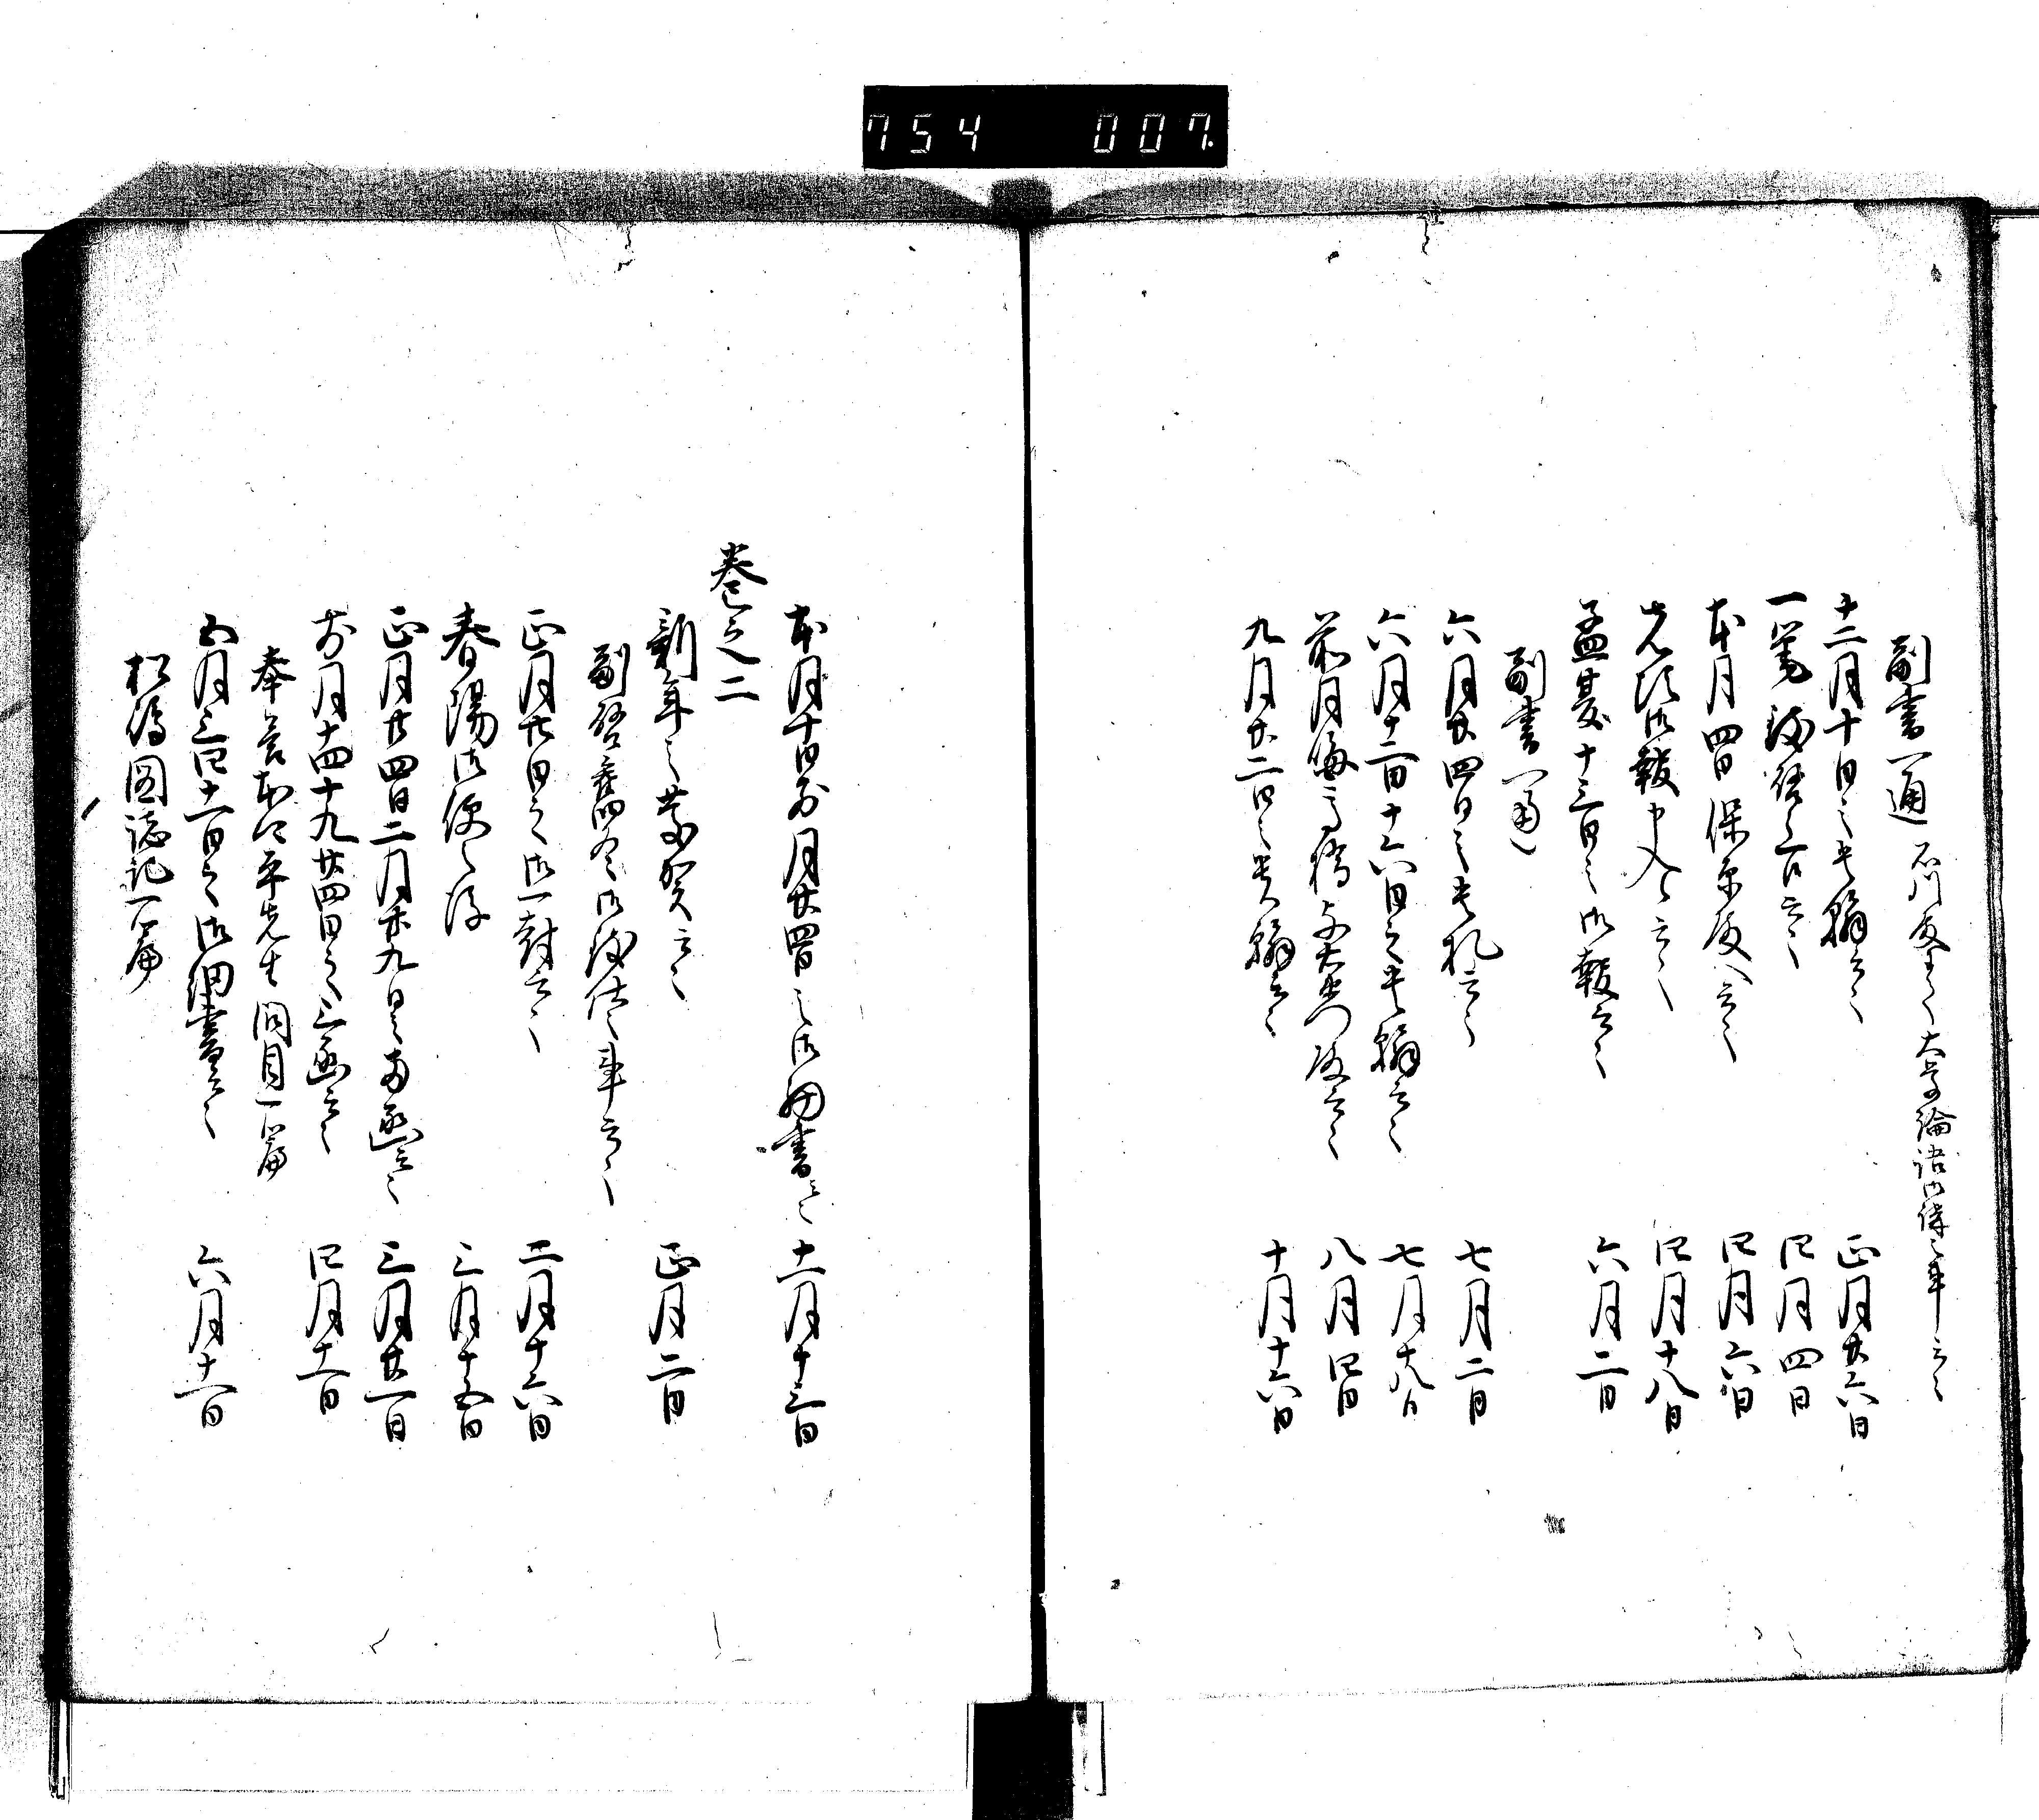 754 007.
副書一通 石川 大学論語御傳之事云々
十二月十日之貴翰云々 正月廿六日
一筆致啓上候云々 四月四日
本月四日保原殿へ云々 四月六日
先頃御報申入候云々 四月十八日
孟夏十三日之御報云々 六月二日
副書一通
六月廿四日之貴札云々 七月二日
六月十二日十六日之貴翰云々 七月十八日
前月晦高橋与右衛門殿云々 八月四日
九月廿二日之貴翰云々 十月十六日
本月十日前月廿四日之御細書云々 十一月十三日
巻之二
新年之慶賀云々 正月二日
副啓旧冬御致仕之事云々
正月廿日之御一封云々 二月十六日
春陽御便之後 三月十五日
正月廿四日二月廿九日之両函云々 三月廿一日
前月十四十九廿四日之三函云々 四月十一日
奉答 先生問目一篇
五月三四十一日之御細書云々 六月十一日
松島図誌記一篇